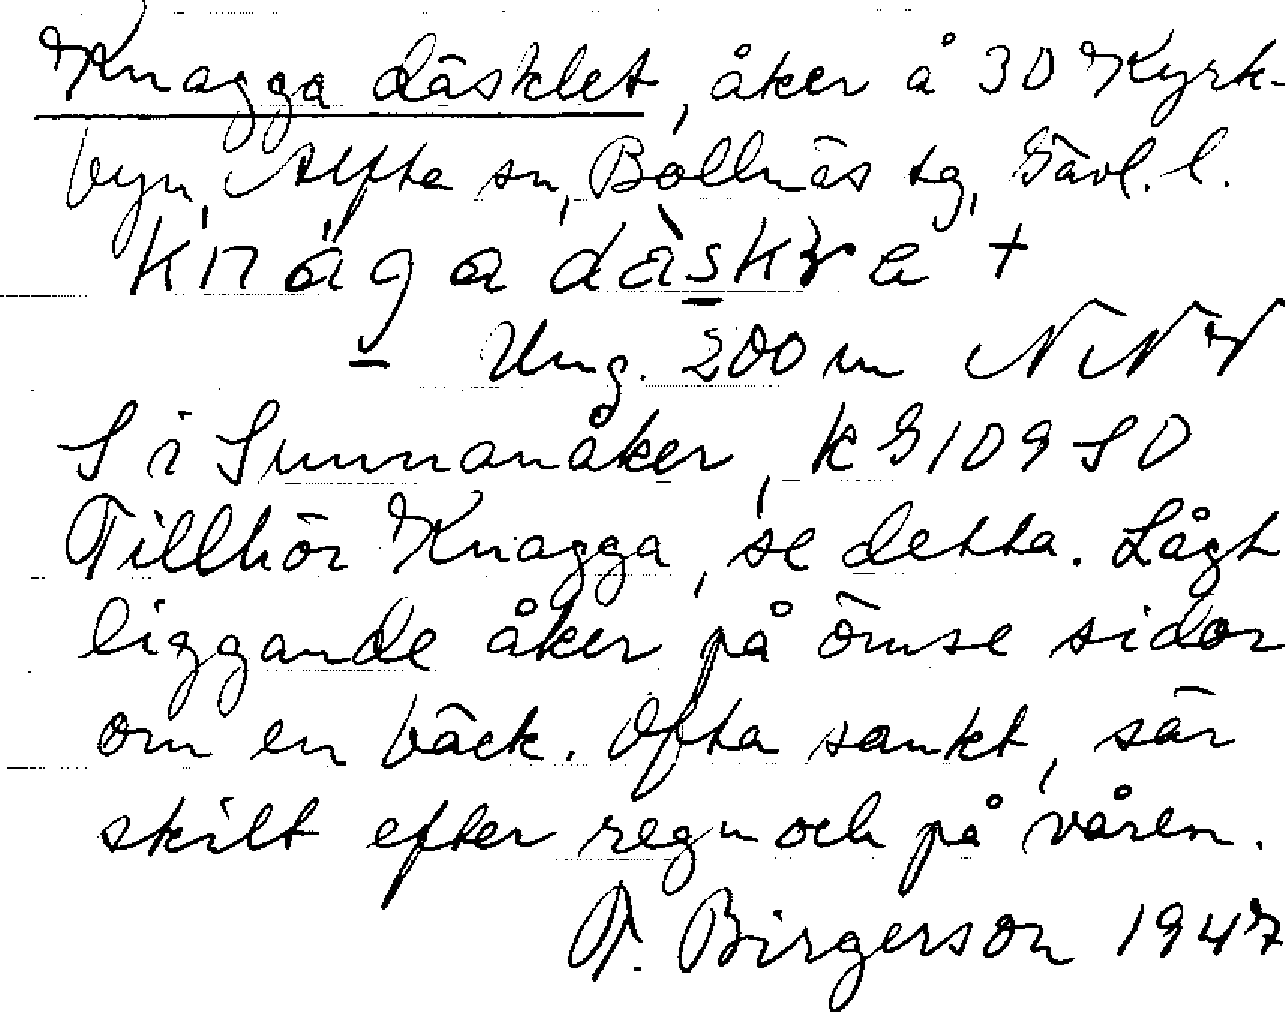 Knagga däsklet, åker å 30 Kyrk-
byn, Alfta sn, Bollnäs tg, Gävl. l.
Ung. 200 m NNV
S i Sunnanåker, kg 109 SO
Tillhör Knagga, se detta. Lågt
liggande åker på ömse sidor
om en bäck. Ofta sankt, sär
skilt efter regn och på våren.
F. Birgerson 1947